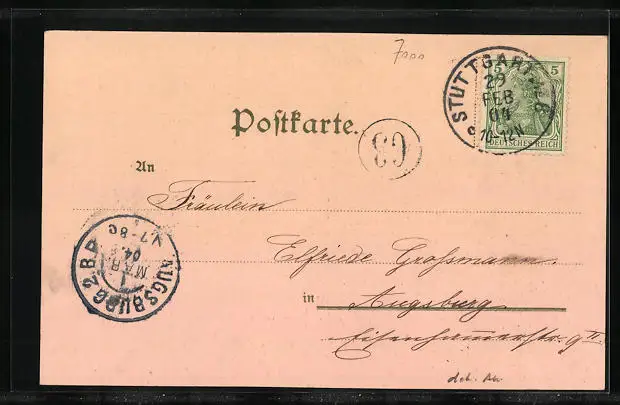 STUTTGART
29
FEB
04
10-12N
5 5
DEUTSCHES REICH
Postkarte.
63
An
Fräulein
Elfriede Grossmann
in Augsburg
Eisenhammerstr. 9 II
AUGSBURG 2. B.P.
MAR
04
V. 7-8